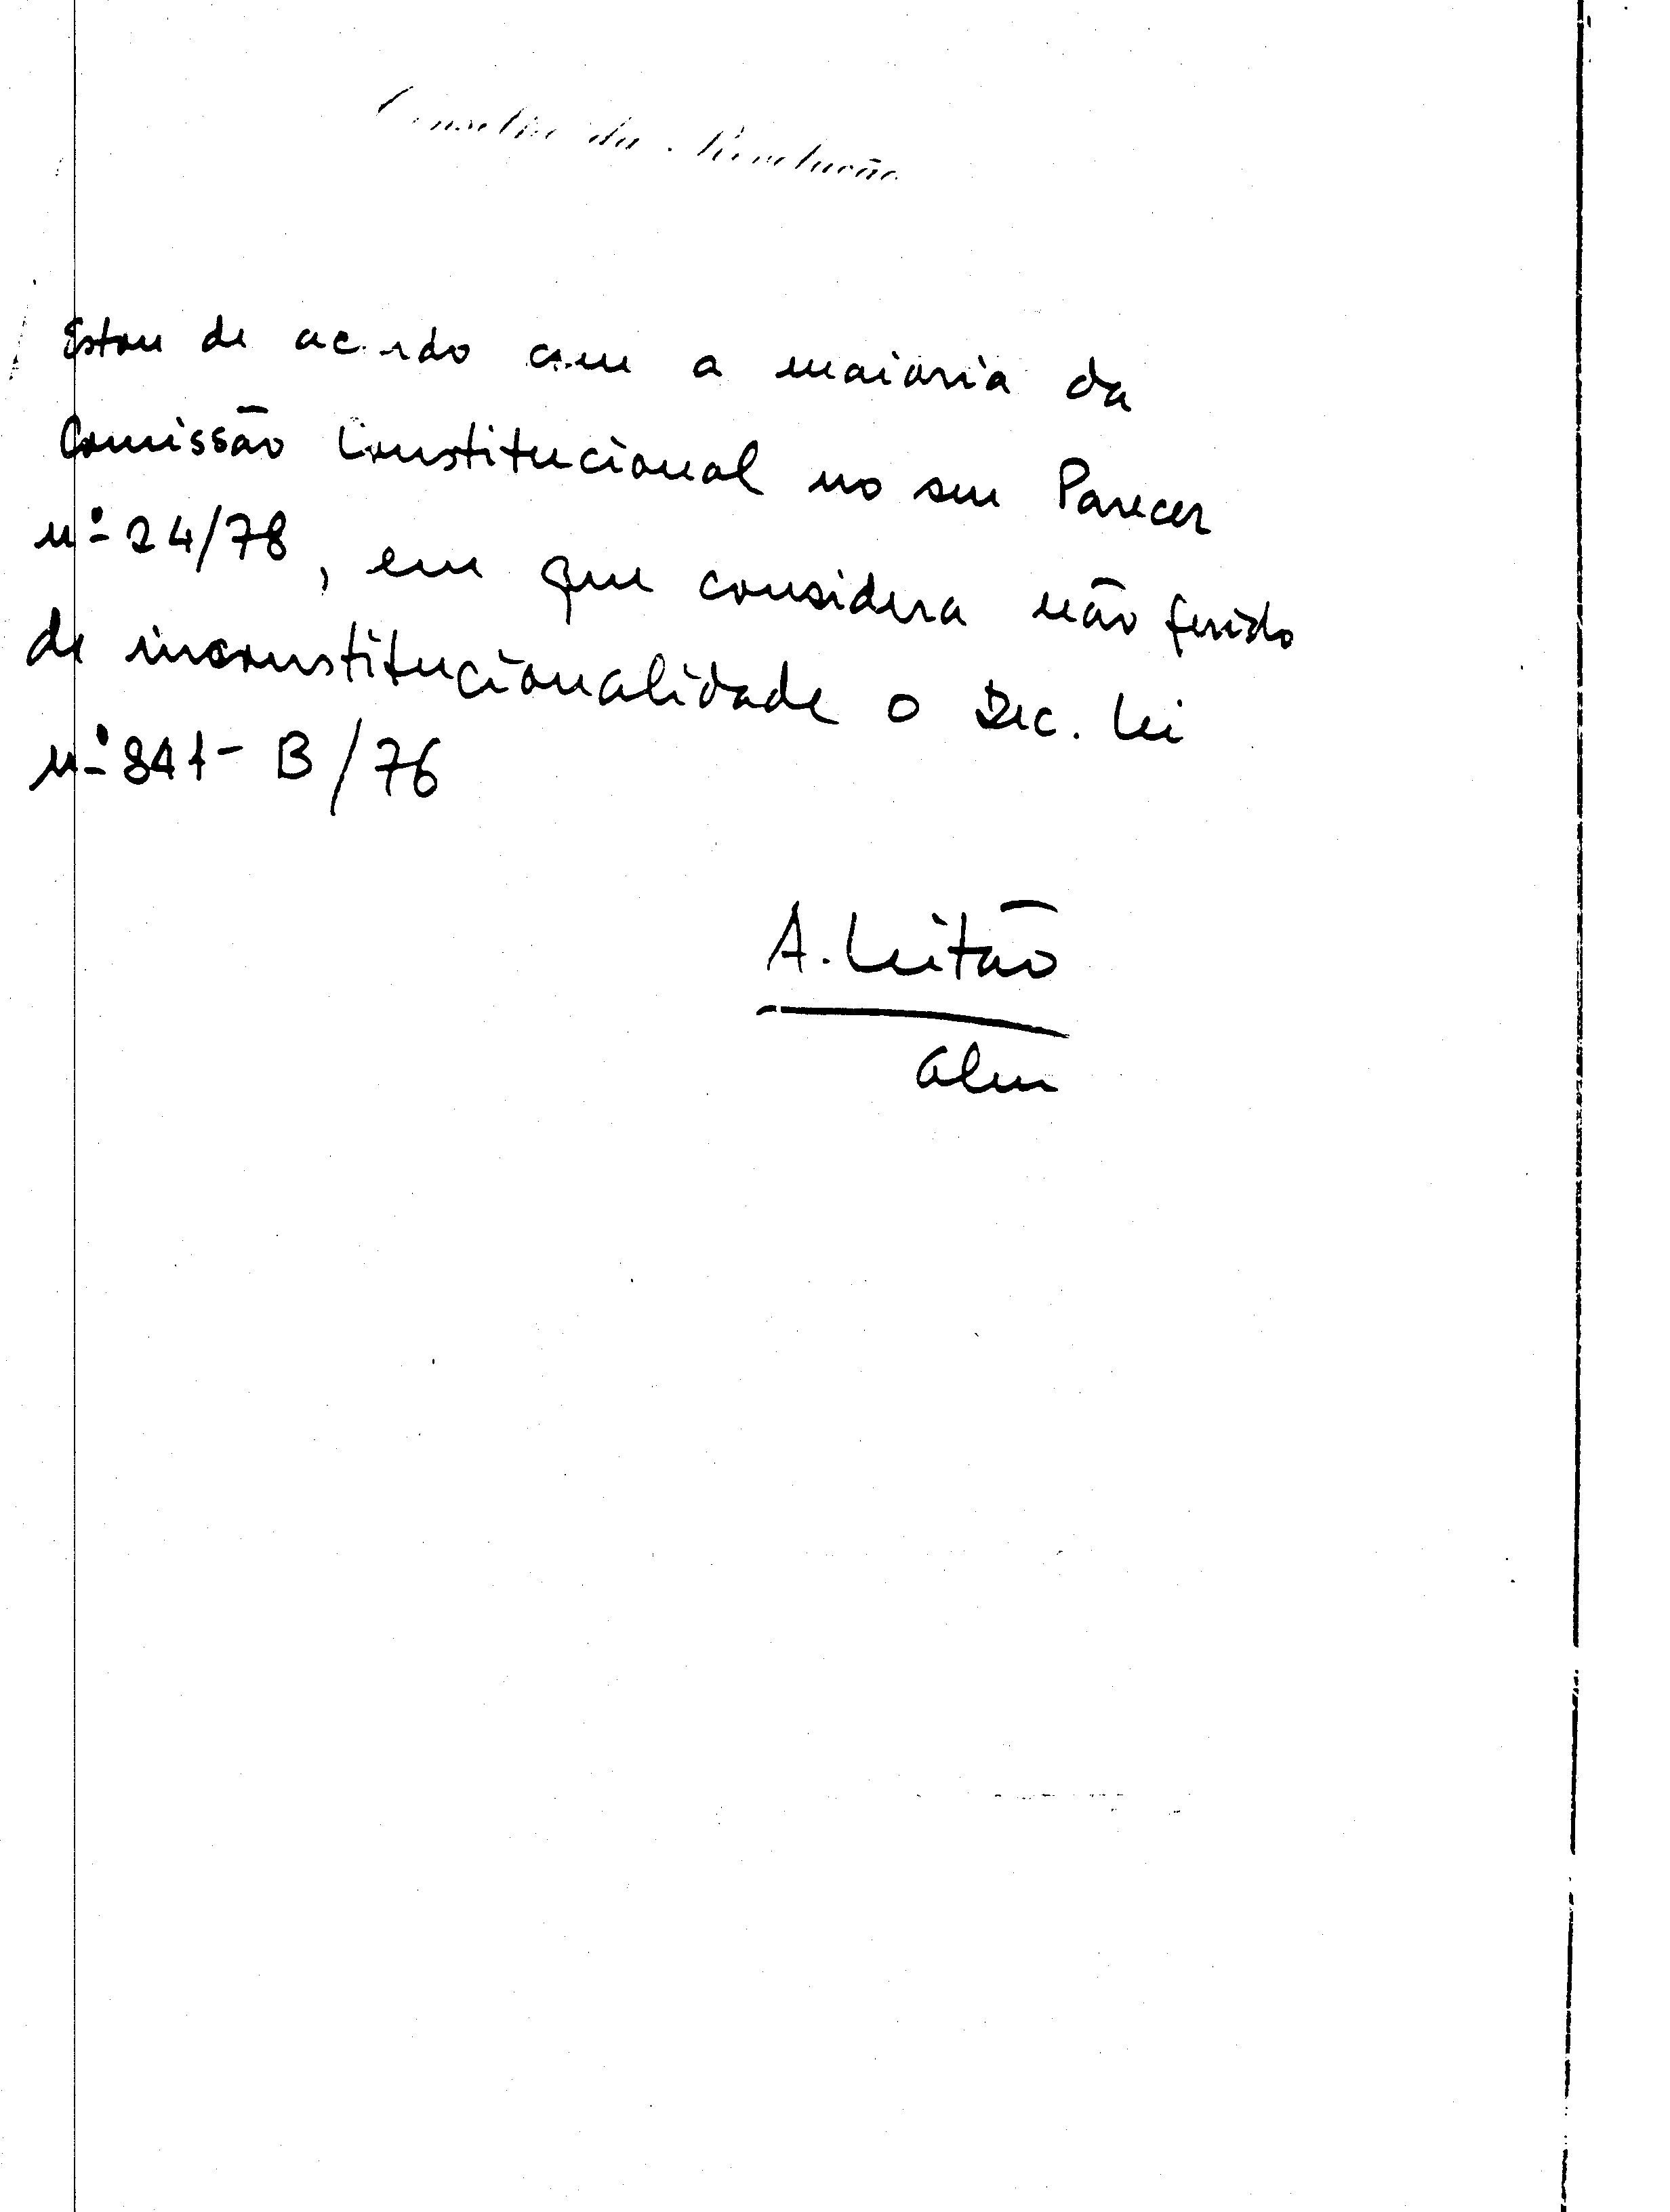 Conselho da Revolução
Estou de acordo com a maioria da
Comissão Constitucional no seu Parecer
nº 24/78, em que considera não ferido
de inconstitucionalidade o Dec. Lei
nº 841-B/76
A. Leitão